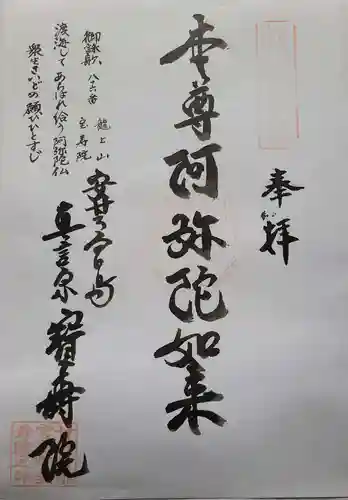 奉拝
本尊阿弥陀如来
御詠歌 八十六番 龍上山 宝寿院
渡海して あらはれ給う 阿弥陀仏
衆生さいどの 願ひひとすじ
真言宗 寶壽院